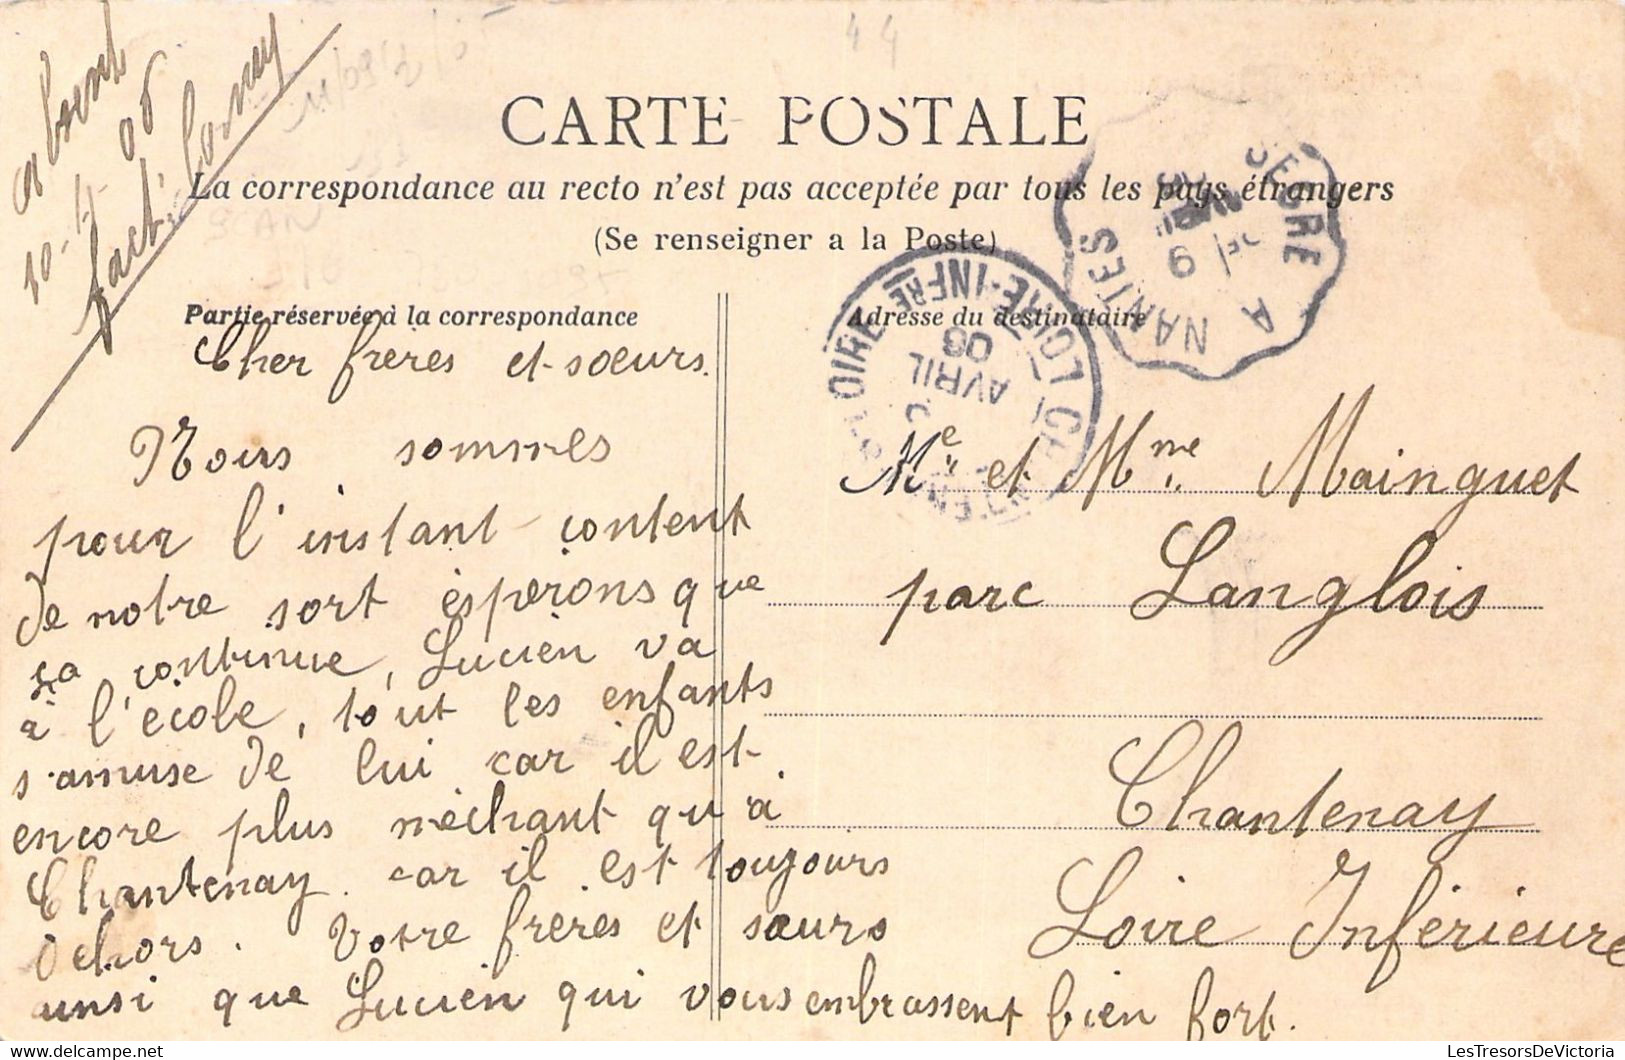 absent
10-4-06
fact,
44
CARTE POSTALE
La correspondance au recto n'est pas acceptée par tous les pays étrangers
(Se renseigner a la Poste)
SEGRE A NANTES
LOIRE-INFRE
AVRIL
06
Partie réservée à la correspondance
Adresse du destinataire
Cher freres et sœurs.
Nous sommes
pour l'instant content
de notre sort ésperons que
ça continue, Lucien va
à l'école, tout les enfants
s'amuse de lui car il est
encore plus méchant qu'à
Chantenay. car il est toujours
dehors. Votre freres et sœurs
ainsi que Lucien qui vous embrassent bien fort.
Me et Mme Mainguet
parc Langlois
Chantenay
Loire Inférieure
LesTresorsDeVictoria